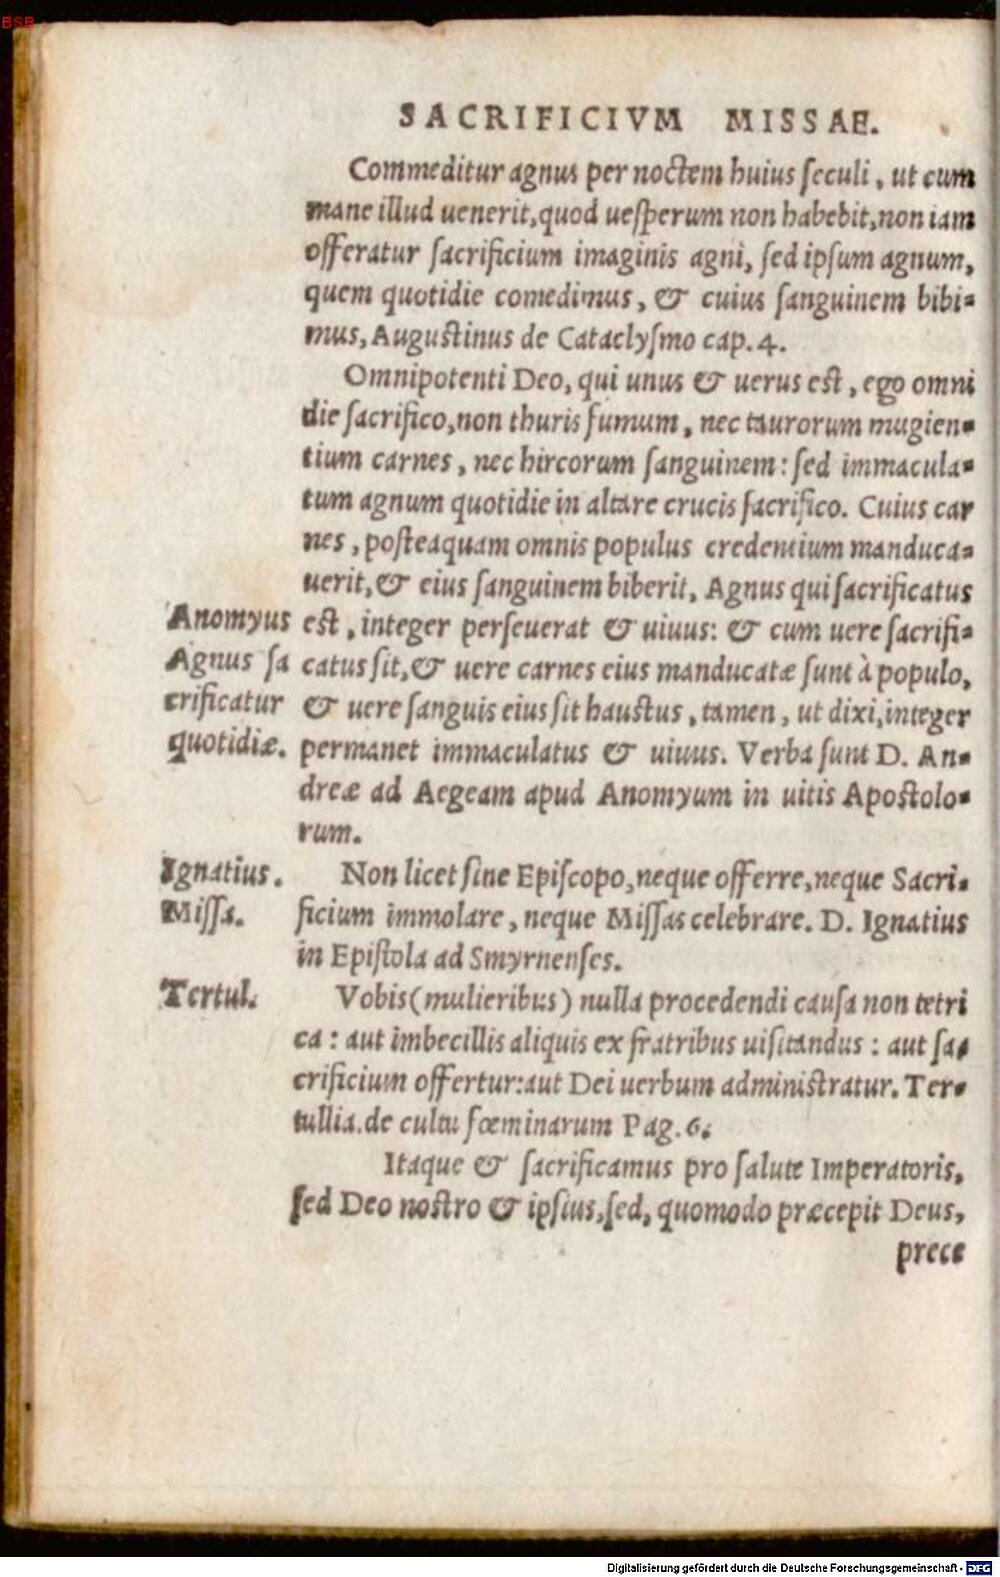 BSB
SACRIFICIVM MISSAE.
Commeditur agnus per noctem huius seculi, ut cum
mane illud uenerit, quod uesperum non habebit, non iam
offeratur sacrificium imaginis agni, sed ipsum agnum,
quem quotidie comedimus, & cuius sanguinem bibi-
mus, Augustinus de Cataclysmo cap. 4.
Omnipotenti Deo, qui unus & uerus est, ego omni
die sacrifico, non thuris fumum, nec taurorum mugien-
tium carnes, nec hircorum sanguinem: sed immacula-
tum agnum quotidie in altare crucis sacrifico. Cuius car
nes, posteaquam omnis populus credentium manduca-
uerit, & eius sanguinem biberit, Agnus qui sacrificatus
est, integer perseuerat & uiuus: & cum uere sacrifi-
catus sit, & uere carnes eius manducatæ sunt à populo,
& uere sanguis eius sit haustus, tamen, ut dixi, integer
permanet immaculatus & uiuus. Verba sunt D. An-
dreæ ad Aegeam apud Anomyum in uitis Apostolo-
rum.
Anomyus
Agnus sa
crificatur
quotidiæ.
Non licet sine Episcopo, neque offerre, neque Sacri-
ficium immolare, neque Missas celebrare. D. Ignatius
in Epistola ad Smyrnenses.
Ignatius.
Missa.
Vobis (mulieribus) nulla procedendi causa non tetri
ca: aut imbecillis aliquis ex fratribus uisitandus: aut sa-
crificium offertur: aut Dei uerbum administratur. Ter-
tullia. de cultu fœminarum Pag. 6.
Tertul.
Itaque & sacrificamus pro salute Imperatoris,
sed Deo nostro & ipsius, sed, quomodo præcepit Deus,
prece
Digitalisierung gefördert durch die Deutsche Forschungsgemeinschaft - DFG